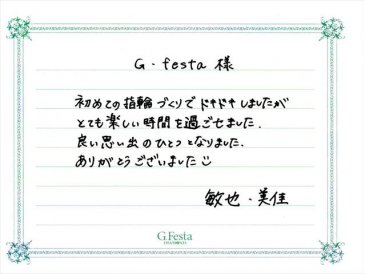 G・festa 様
初めての指輪づくりでドキドキしましたが
とても楽しい時間を過ごせました.
良い思い出のひとつとなりました.
ありがとうございました
敏也・美佳
G.Festa